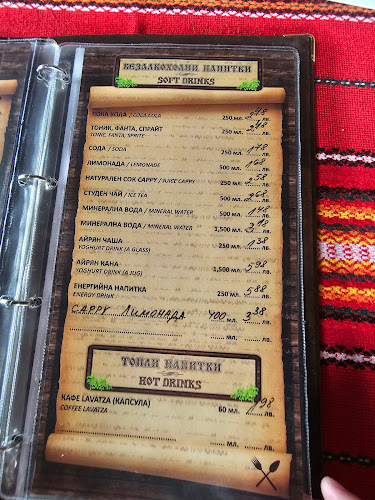 БЕЗАЛКОХОЛНИ НАПИТКИ
SOFT DRINKS
КОКА КОЛА / COCA COLA 250 МЛ. лв.
ТОНИК, ФАНТА, СПРАЙТ 250 МЛ. лв.
TONIC, FANTA, SPRITE
СОДА / SODA 250 МЛ. 1,78 лв.
ЛИМОНАДА / LEMONADE 500 МЛ. 1,68 лв.
НАТУРАЛЕН СОК CAPPY / JUICE CAPPY 250 МЛ. лв.
СТУДЕН ЧАЙ / ICE TEA 500 МЛ. лв.
МИНЕРАЛНА ВОДА / MINERAL WATER 500 МЛ. лв.
МИНЕРАЛНА ВОДА / MINERAL WATER 1,500 МЛ. лв.
АЙРЯН ЧАША 250 МЛ. 1,38 лв.
YOGHURT DRINK (A GLASS)
АЙРЯН КАНА 1,500 МЛ. 5,98 лв.
YOGHURT DRINK (A JUG)
ЕНЕРГИЙНА НАПИТКА 250 МЛ. 5,88 лв.
ENERGY DRINK
CAPPY ЛИМОНАДА 400 МЛ. 3,38 лв.
МЛ. лв.
ТОПЛИ НАПИТКИ
HOT DRINKS
КАФЕ LAVATZA (КАПСУЛА) 60 МЛ. лв.
COFFEE LAVATZA
МЛ. лв.